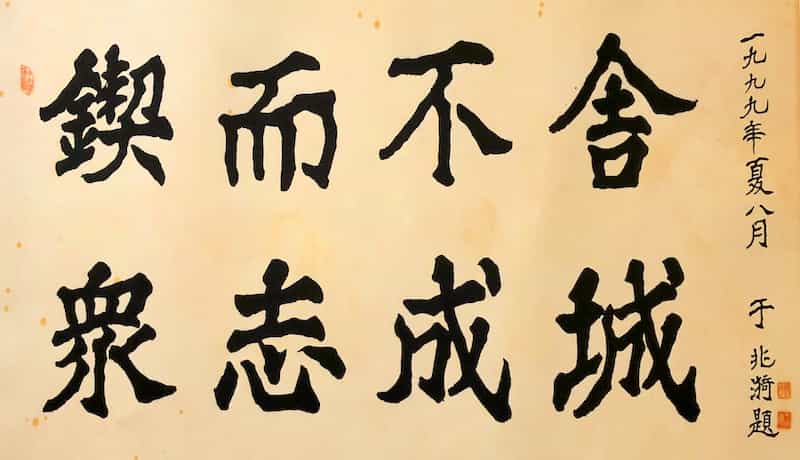 鍥而不舍
衆志成城
一九九九年夏八月 于兆漪題